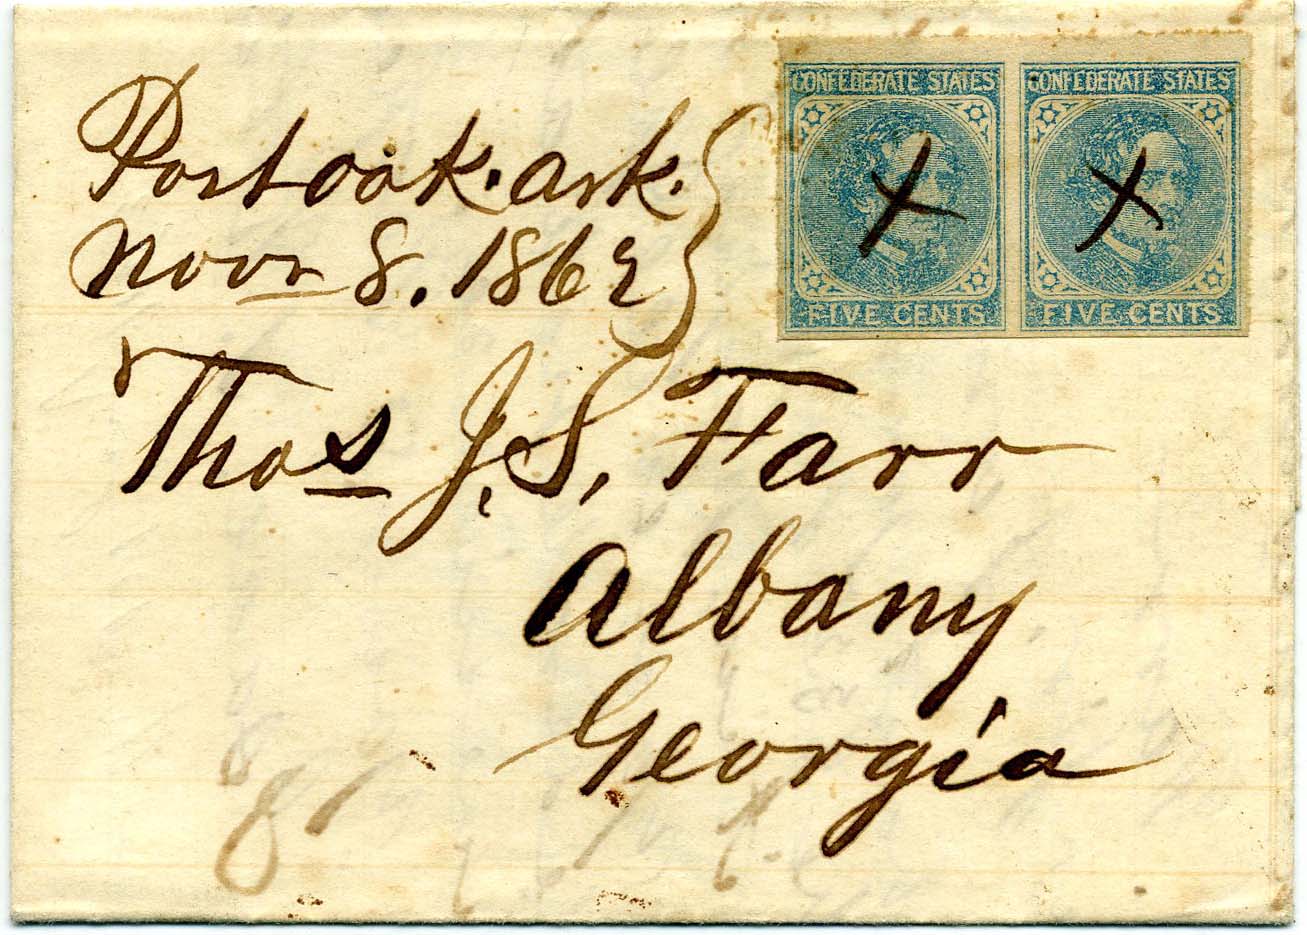 CONFEDERATE STATES CONFEDERATE STATES
FIVE CENTS FIVE CENTS
Post oak. ark.
Novr 8. 1862
Thos J. S. Farr
Albany
Georgia